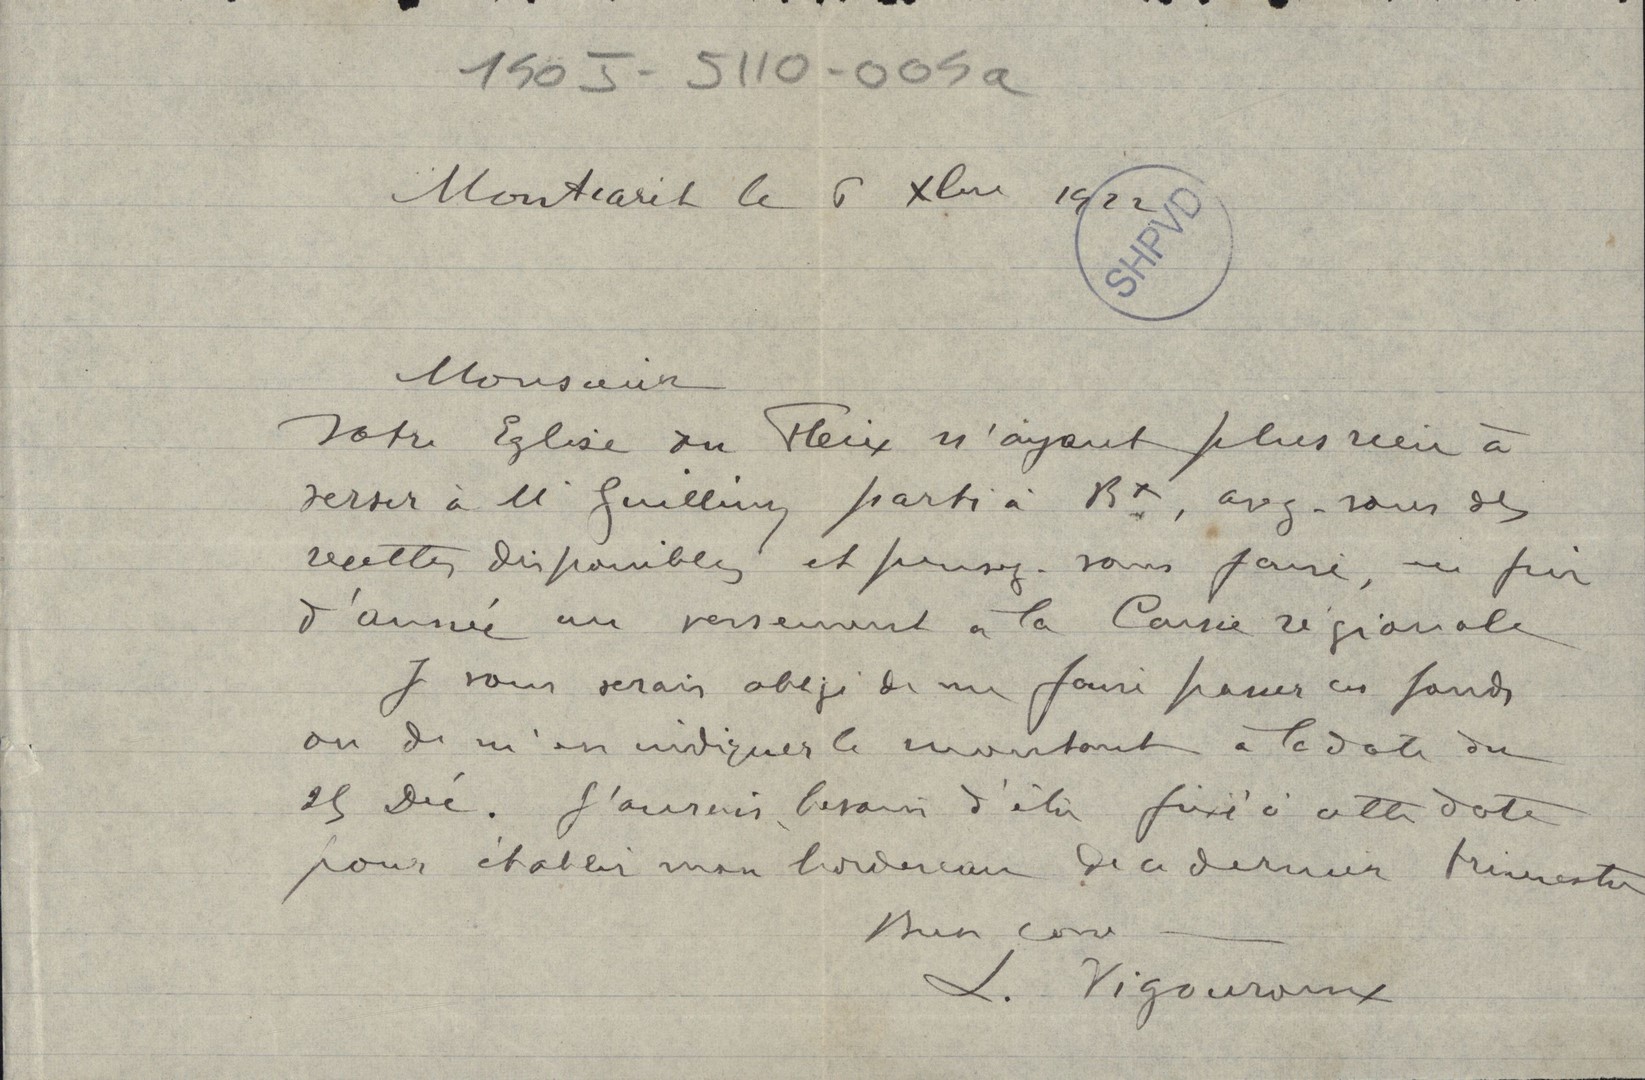 150 J - 5110 - 005a
Montcaret le 6 Xbre 1922
SHPVD
Monsieur
Votre Eglise du Fleix n'ayant plus rien à
verser à Mr parti à Bx, avez-vous des
recettes disponibles et pensez-vous faire, en fin
d'année un versement à la Caisse régionale
Je vous serais obligé de me faire passer ces fonds
ou de m'en indiquer le montant à la date du
25 Déc. J'aurais besoin d'être fixé à cette date
pour établir mon bordereau de ce dernier trimestre
Bien
L. Vigouroux